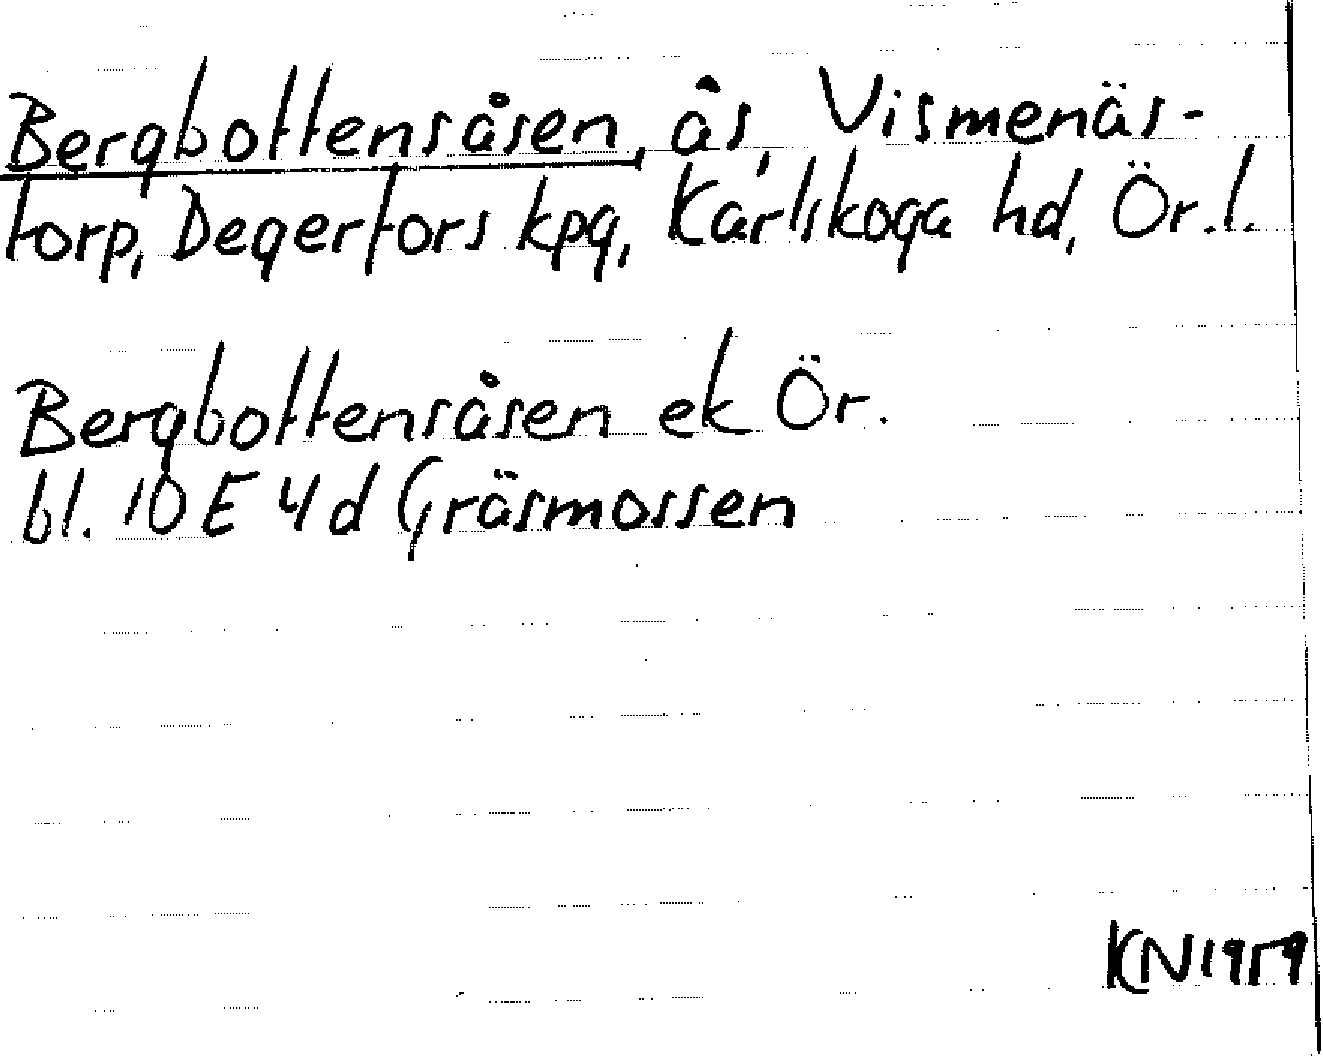 Bergbottensåsen, ås, Vismenäs-
torp, Degerfors kpg, Karlskoga hd, Ör.l.
Bergbottensåsen ek Ör.
bl. 10 E 4 d Gräsmossen
KN 1959